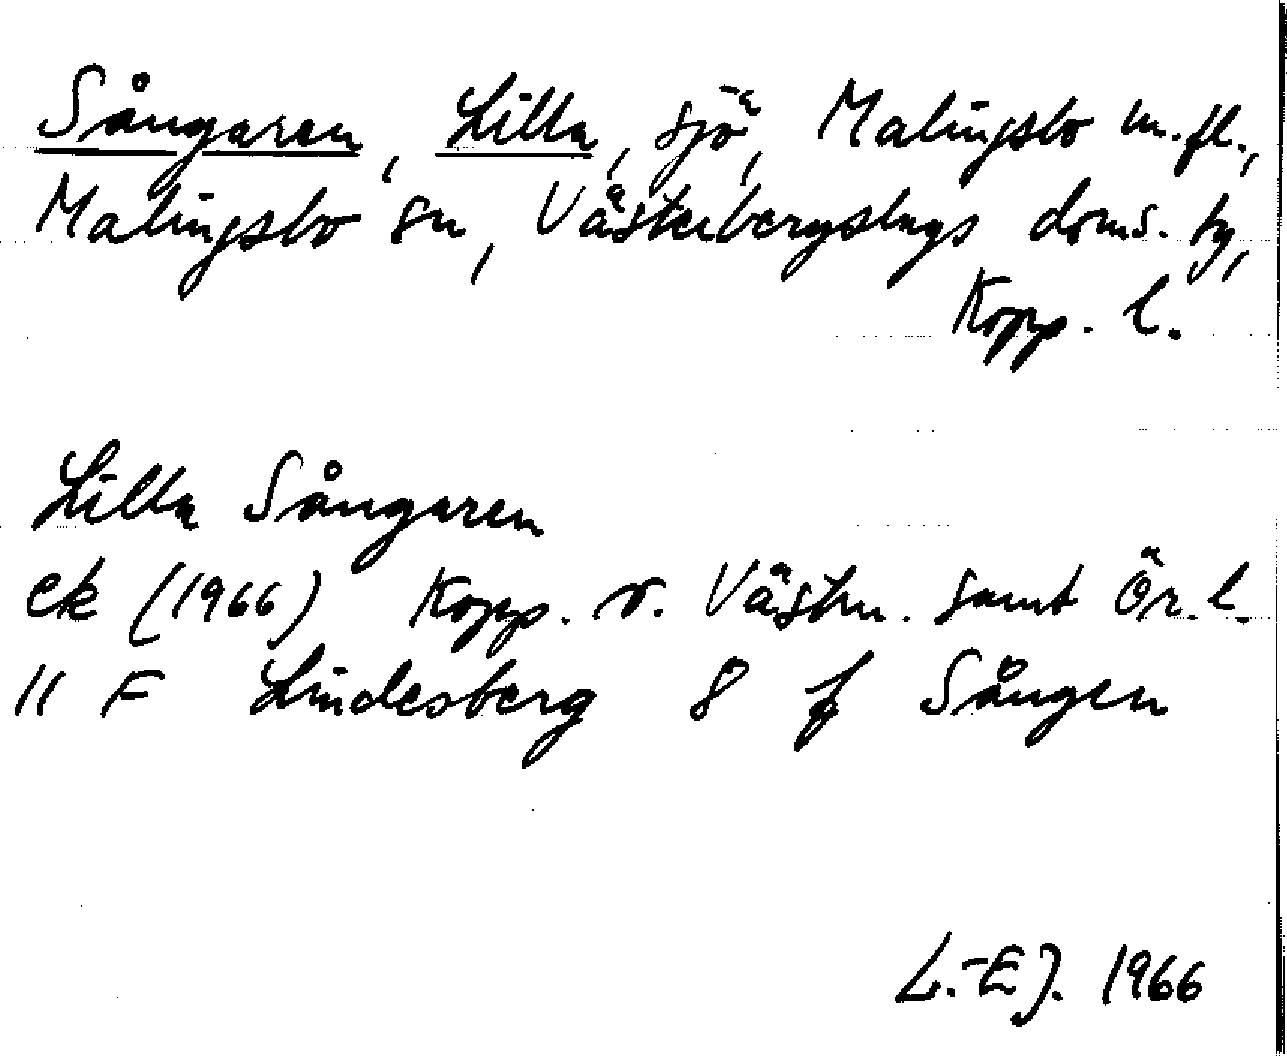 Sångaren, Lilla, sjö, Malingsbo m.fl.,
Malingsbo sn, Västerbergslags doms. hg,
Kopp. l.
Lilla Sångaren
ek (1966) Kopp. o. Västm. samt Ör. l.
11 F Lindesberg 8 f Sången
L.-E J. 1966